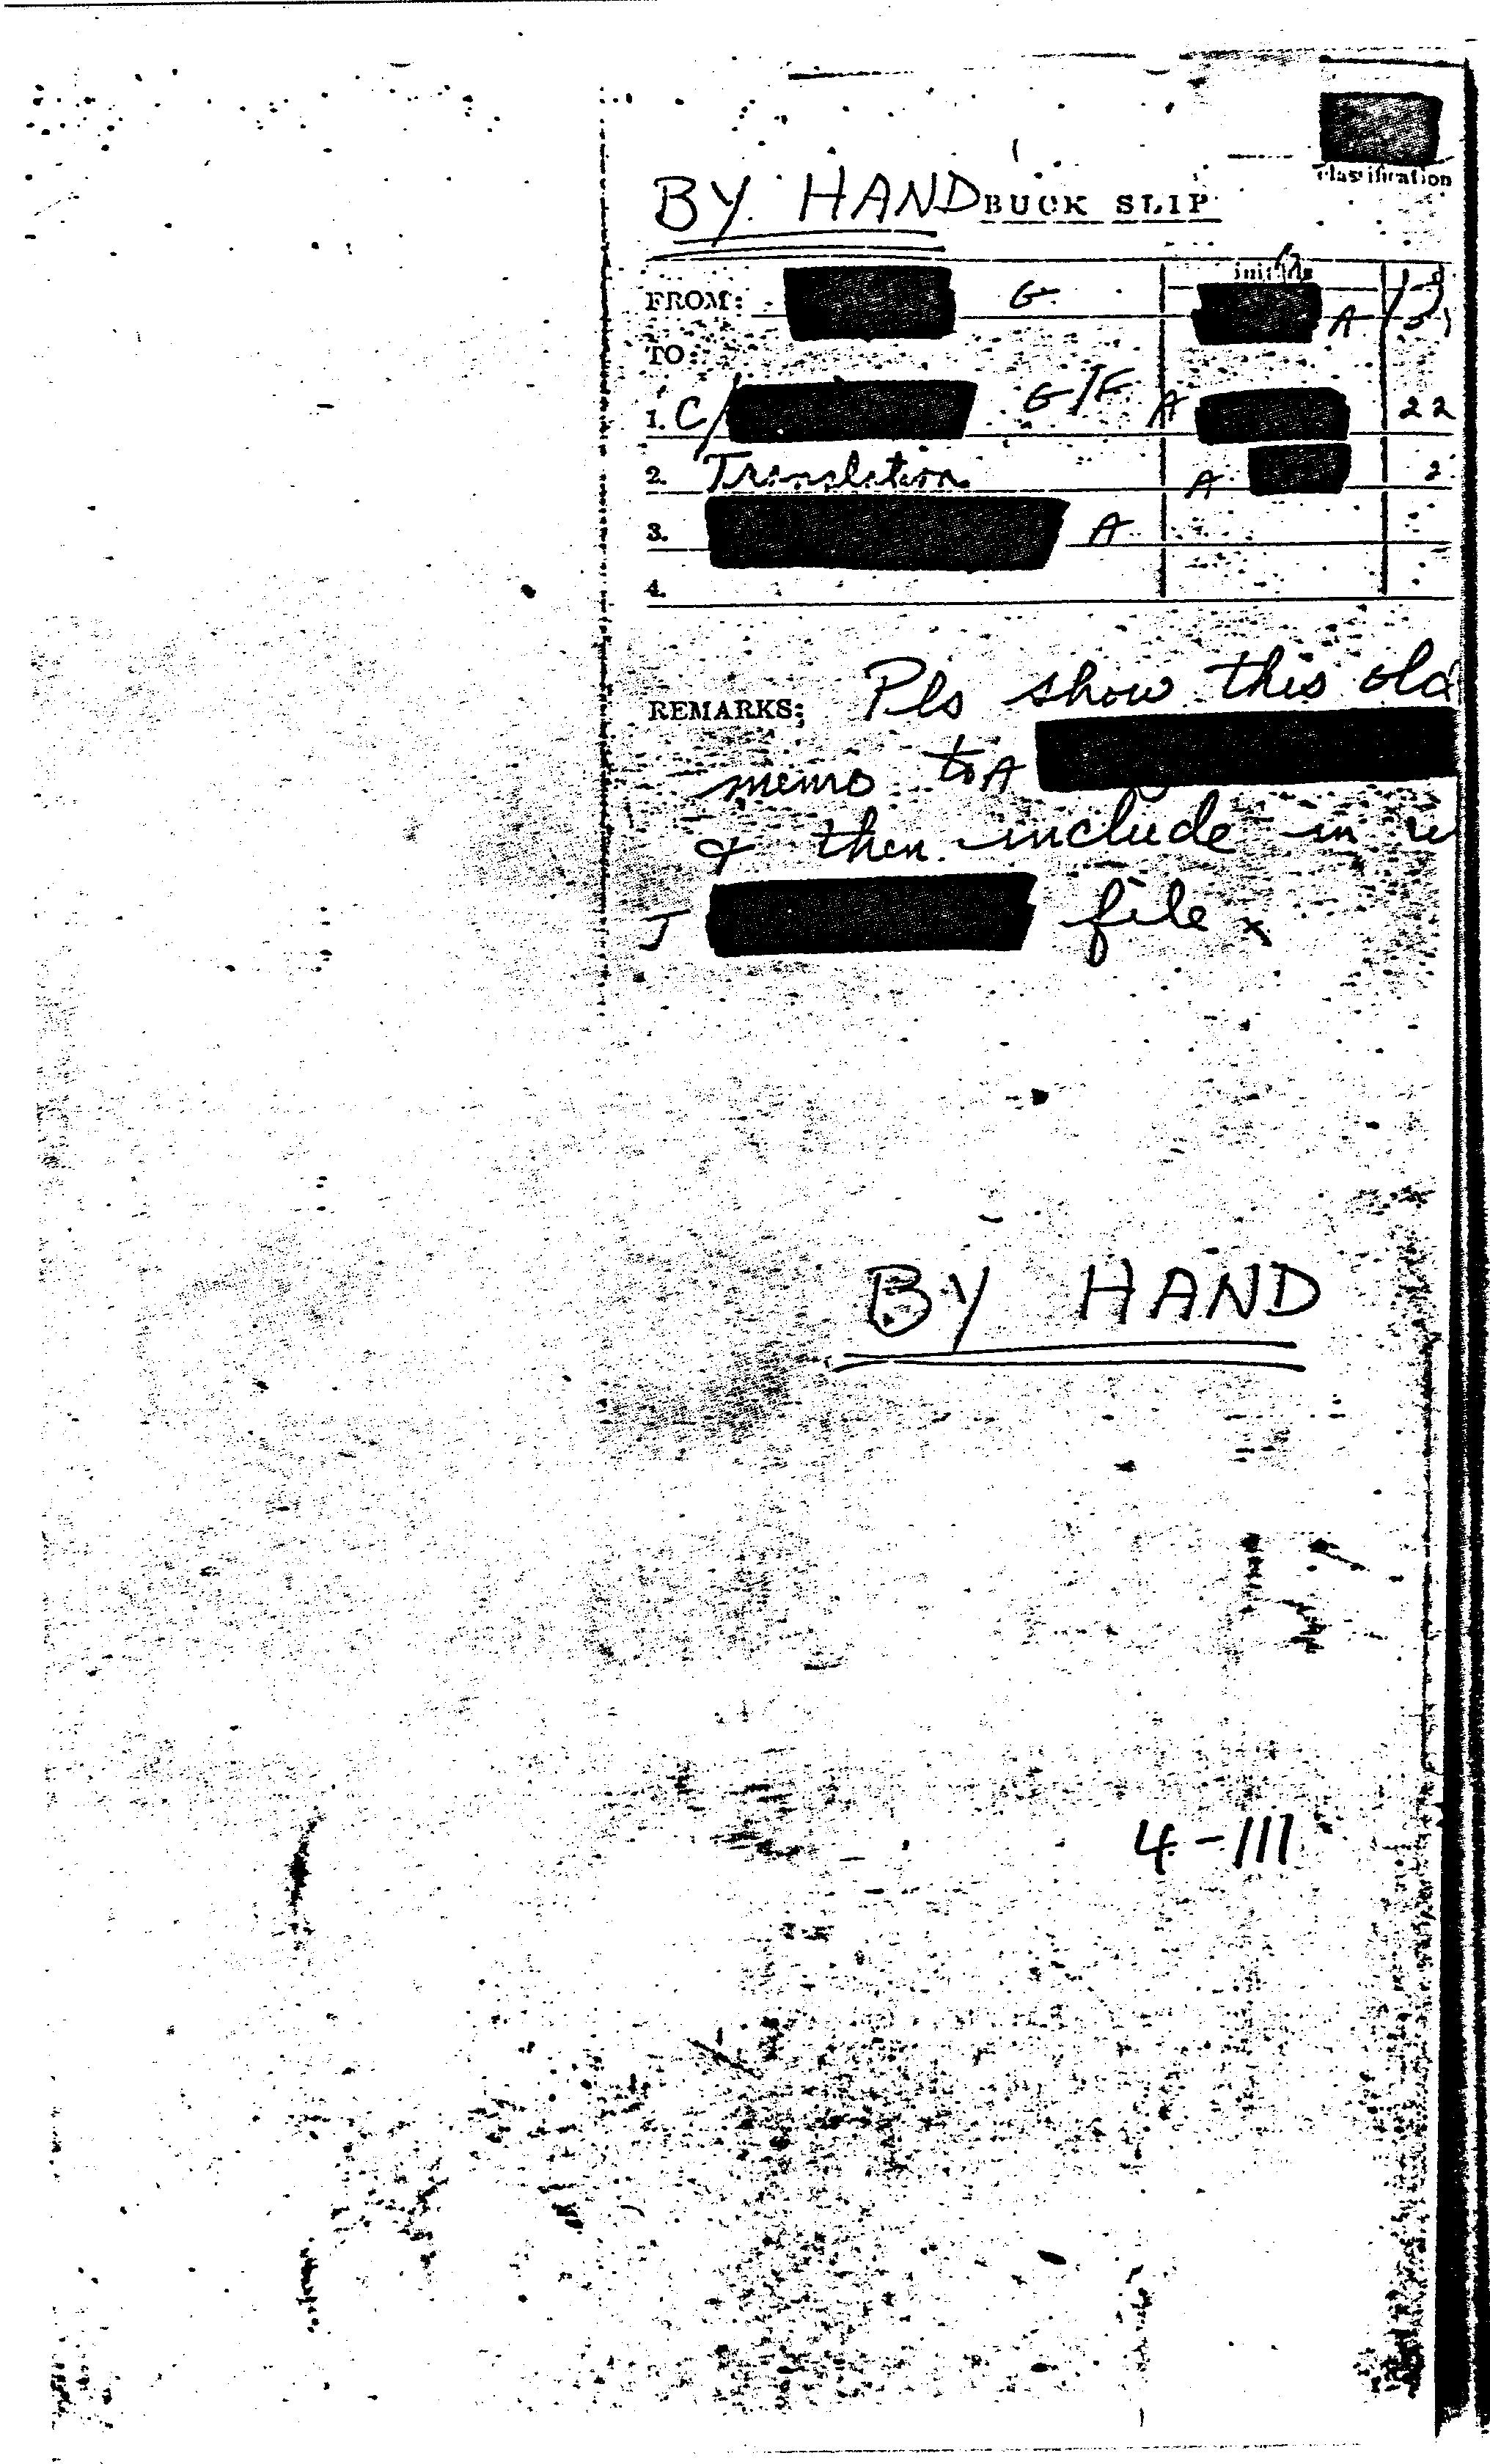 classification
BY HAND BUCK SLIP
initials
FROM: G A
TO:
1. C/ G/F A 22
2. Translation A 2
3. A
4.
REMARKS: Pls show this old
memo to A
& then include in
J file x
BY HAND
4-111